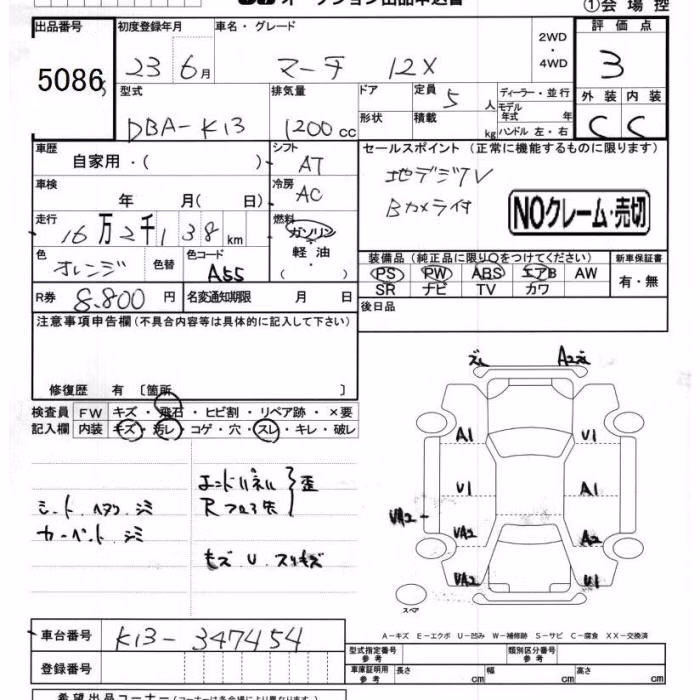 オークション出品申込書
①会場控
出品番号 初度登録年月 車名・グレード 評価点
5086 23 6月 マーチ 12X 2WD・4WD 3
型式 排気量 ドア 定員 5人 ディーラー・並行 外装 内装
DBA-K13 1200cc 形状 積載 kg モデル年式 年 ハンドル 左・右 C C
車歴 自家用・( ) シフト AT セールスポイント (正常に機能するものに限ります)
車検 年 月( 日) 冷房 AC 地デジTV
Bカメラ付 NOクレーム・売切
走行 16万2千138km 燃料 ガソリン・軽油・( )
色 オレンジ 色替 色コード A55 装備品 (純正品に限り○をつけてください) 新車保証書
PS PW ABS エアB AW 有・無
SR ナビ TV カワ
R券 8.800円 名変通知期限 月 日 後日品
注意事項申告欄 (不具合内容等は具体的に記入して下さい)
修復歴 有 〔箇所 〕
検査員 FW キズ・飛石・ヒビ割・リペア跡・×要
記入欄 内装 キズ・汚レ・コゲ・穴・スレ・キレ・破レ
シート.ヘタリ.シミ
カーペット.シミ
エンドパネル
Rフロア先
歪
キズ U スリキズ
ズレ A2ズレ
A1 U1
U1 A1
UA2
UA2 A2
UA2 U1
スペア
A−キズ E−エクボ U−凹み W−補修跡 S−サビ C−腐食 XX−交換済
車台番号 K13-347454
登録番号
型式指定番号 参考 類別区分番号 参考
車庫証明用 参考 長さ cm 幅 cm 高さ cm
希望出品コーナー